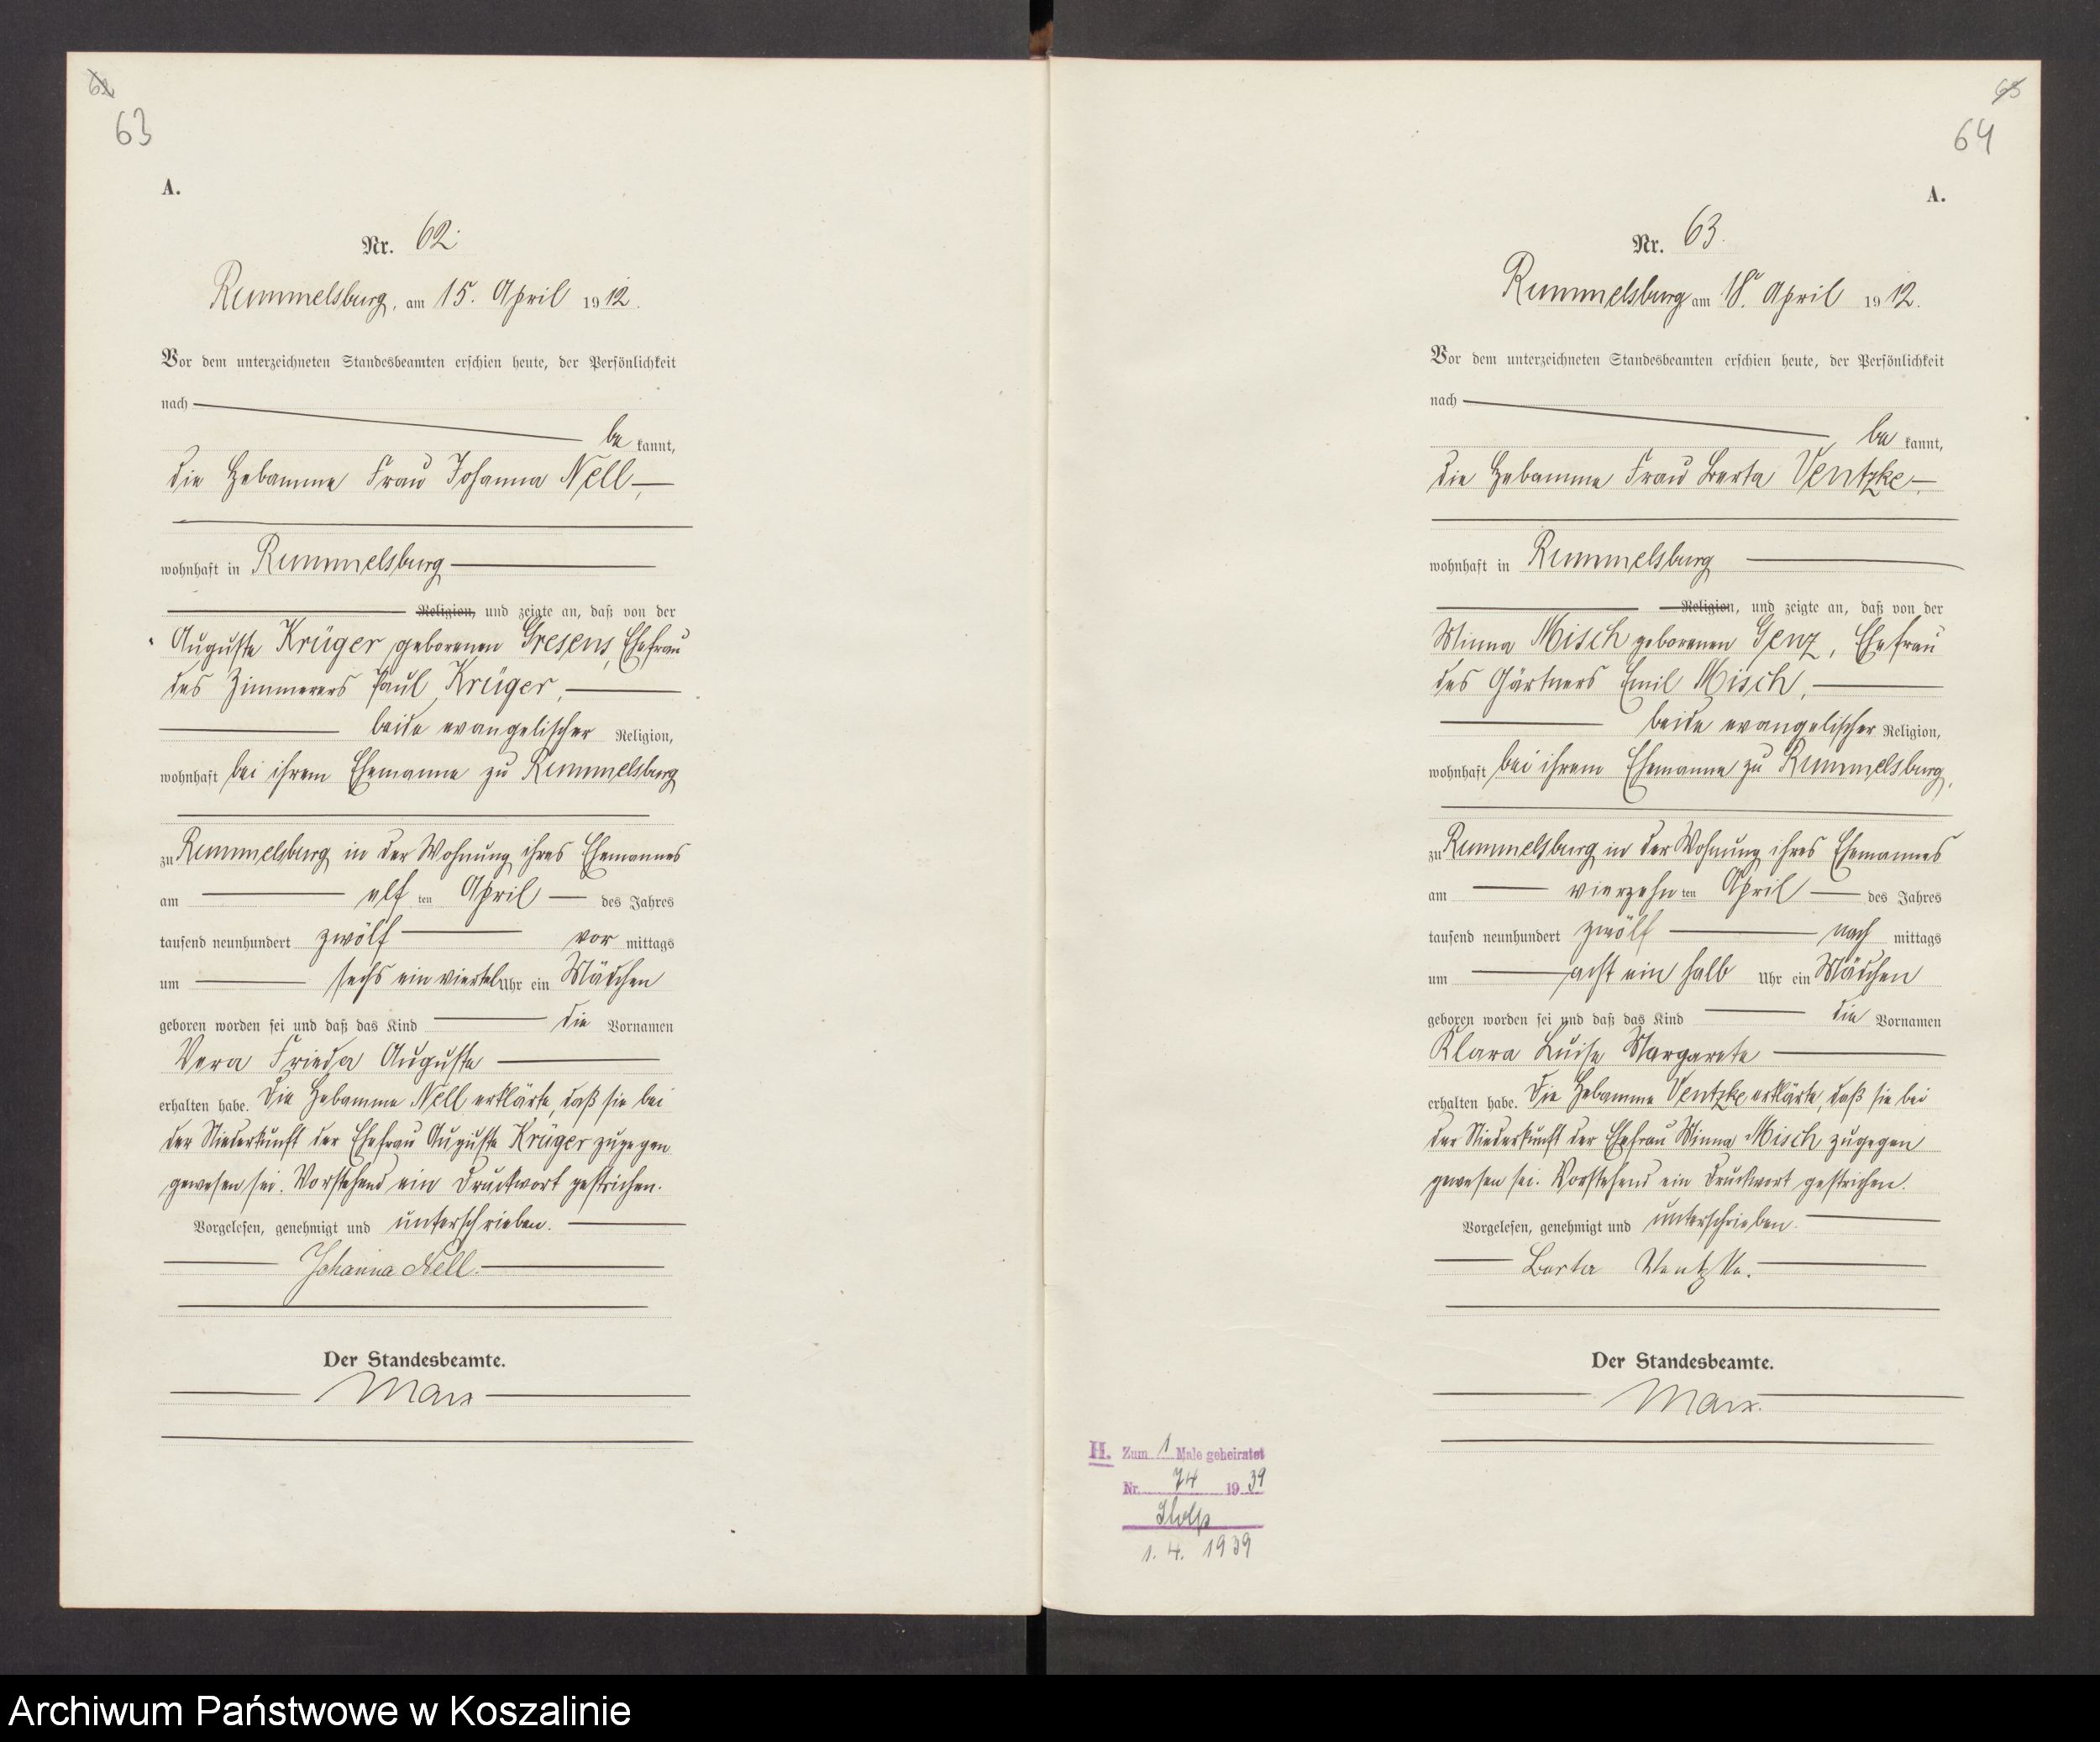 63
A.
Nr. 62.
Rummelsburg, am 15. April 1912.
Vor dem unterzeichneten Standesbeamten erschien heute, der Persönlichkeit
nach
be kannt,
die Hebamme Frau Johanna Nell,
wohnhaft in Rummelsburg
Religion, und zeigte an, daß von der
Auguste Krüger geborenen Gresens, Ehefrau
des Zimmerers Paul Krüger,
beide evangelischer Religion,
wohnhaft bei ihrem Ehemanne zu Rummelsburg
zu Rummelsburg in der Wohnung ihres Ehemannes
am elf ten April des Jahres
tausend neunhundert zwölf vor mittags
um sechs ein viertel Uhr ein Mädchen
geboren worden sei und daß das Kind die Vornamen
Vera Frieda Auguste
erhalten habe. Die Hebamme Nell erklärte, daß sie bei
der Niederkunft der Ehefrau Auguste Krüger zugegen
gewesen sei. Vorstehend ein Druckwort gestrichen.
Vorgelesen, genehmigt und unterschrieben.
Johanna Nell.
Der Standesbeamte.
Marx
65
64
A.
Nr. 63.
Rummelsburg am 18. April 1912.
Vor dem unterzeichneten Standesbeamten erschien heute, der Persönlichkeit
nach
be kannt,
die Hebamme Frau Berta Ventzke,
wohnhaft in Rummelsburg
Religion, und zeigte an, daß von der
Minna Misch geborenen Genz, Ehefrau
des Gärtners Emil Misch,
beide evangelischer Religion,
wohnhaft bei ihrem Ehemanne zu Rummelsburg,
zu Rummelsburg in der Wohnung ihres Ehemannes
am vierzehn ten April des Jahres
tausend neunhundert zwölf nach mittags
um acht ein halb Uhr ein Mädchen
geboren worden sei und daß das Kind die Vornamen
Klara Luise Margarete
erhalten habe. Die Hebamme Ventzke erklärte, daß sie bei
der Niederkunft der Ehefrau Minna Misch zugegen
gewesen sei. Vorstehend ein Druckwort gestrichen.
Vorgelesen, genehmigt und unterschrieben.
Berta Ventzke.
Der Standesbeamte.
Marx.
H. Zum 1 Male geheiratet
Nr. 74 1939
Stolp
1. 4. 1939
Archiwum Państwowe w Koszalinie